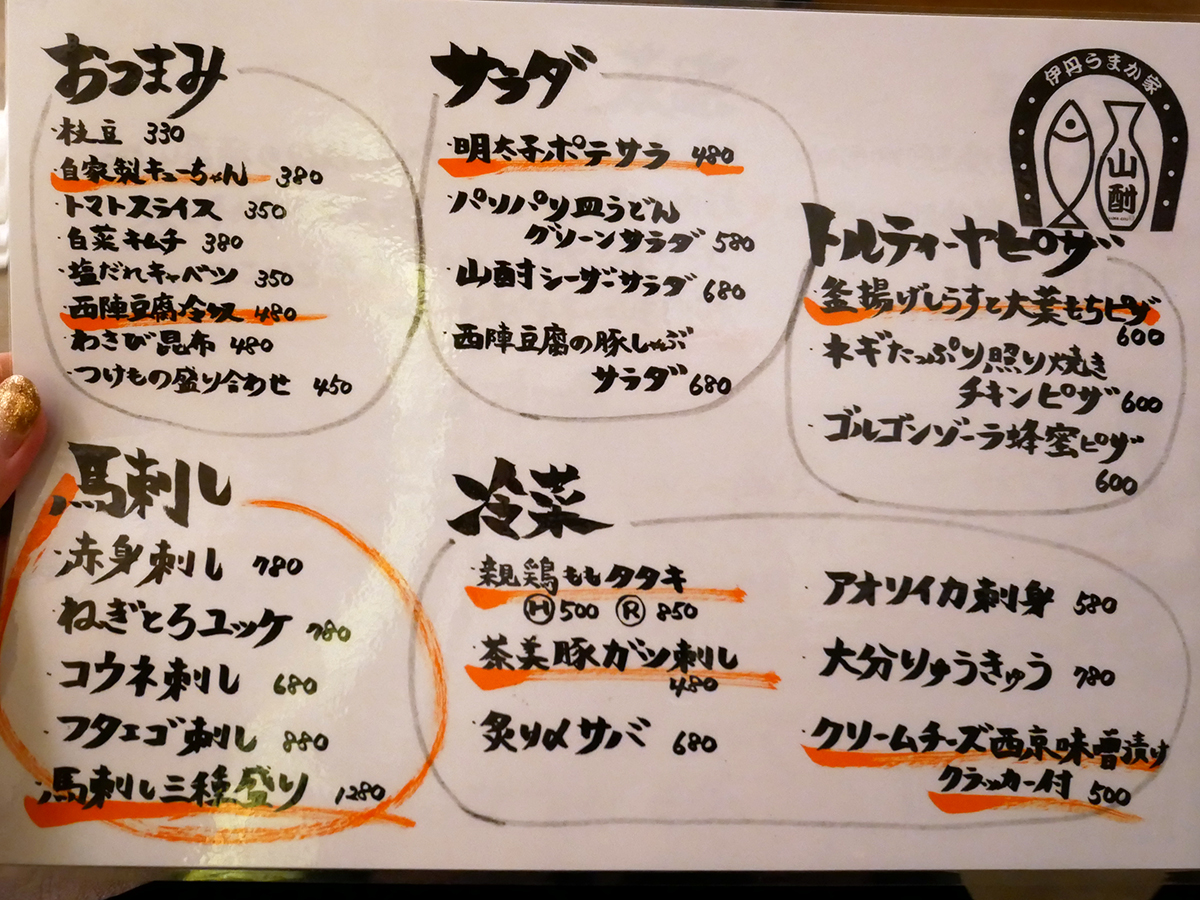 おつまみ
・枝豆 330
・自家製キューちゃん 380
・トマトスライス 350
・白菜キムチ 380
・塩だれキャベツ 350
・西陣豆腐冷奴 480
・わさび昆布 480
・つけもの盛り合わせ 450
サラダ
・明太子ポテサラ 480
・パリパリ皿うどん
グリーンサラダ 580
・山酎シーザーサラダ 680
・西陣豆腐の豚しゃぶ
サラダ 680
伊丹うまか家
山酎
トルティーヤピザ
・釜揚げしらすと大葉もちピザ
600
・ネギたっぷり照り焼き
チキンピザ 600
・ゴルゴンゾーラ蜂蜜ピザ
600
馬刺し
・赤身刺し 780
・ねぎとろユッケ 780
・コウネ刺し 680
・フタエゴ刺し 880
・馬刺し三種盛り 1280
冷菜
・親鶏ももタタキ
Ⓗ500 Ⓡ850
・茶美豚ガツ刺し
480
・炙り〆サバ 680
・アオリイカ刺身 580
・大分りゅうきゅう 780
・クリームチーズ西京味噌漬け
クラッカー付 500